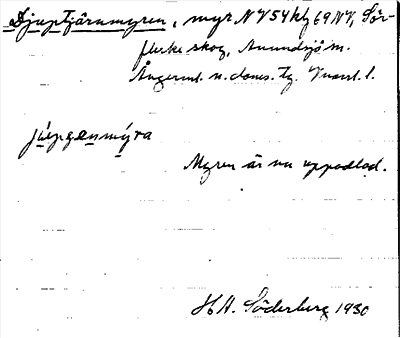 Djuptjärnmyren, myr NV54hf69NV, Sör-
flärke skog, Anundsjö sn.
Ångerml. n. doms. tg. Vnorrl. l.
Myren är nu uppodlad.
H A. Söderberg 1930